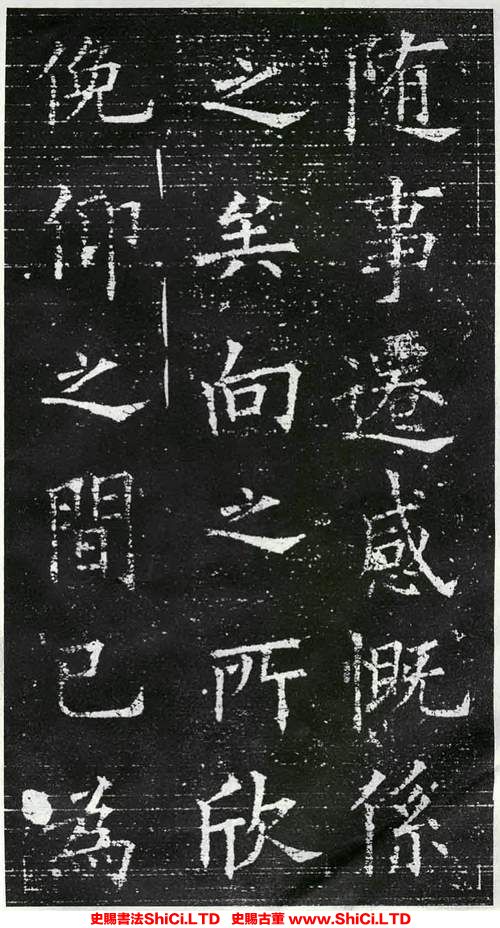 随事遷感慨係
之矣向之所欣
俛仰之間已為
史賜書法ShiCi.LTD 史賜古董 www.ShiCi.LTD